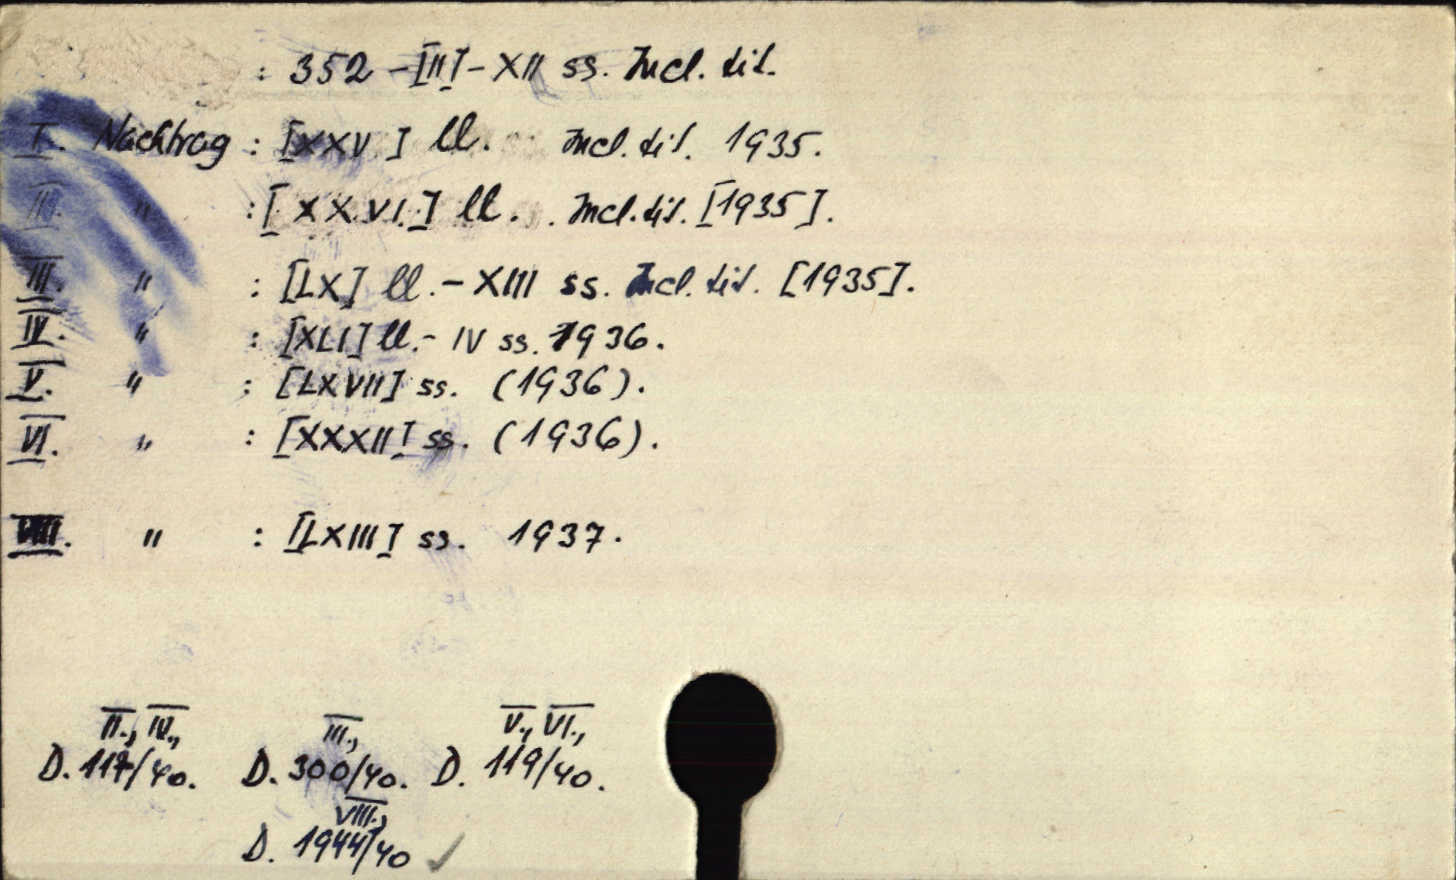 : 352 - [II] - XII ss. Incl. tit.
I. Nachtrag : [XXV] ll. Incl. tit. 1935.
II. " : [XXVI.] ll. Incl. tit. [1935].
III. " : [LX] ll. - XIII ss. Incl. tit. [1935].
IV. " : [XLI] ll. - IV ss. 1936.
V. " : [LXVII] ss. (1936).
VI. " : [XXXII] ss. (1936).
VIII. " : [LXIII] ss. 1937.
II., IV., III., V., VI.,
D. 117/40. D. 300/40. D. 119/40.
VIII.,
D. 1944/40 ✓